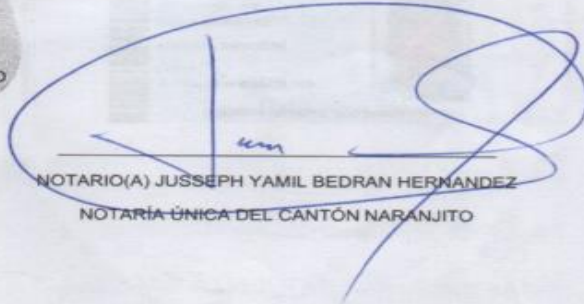 NOTARIO(A) JUSSEPH YAMIL BEDRAN HERNANDEZ
NOTARÍA ÚNICA DEL CANTÓN NARANJITO